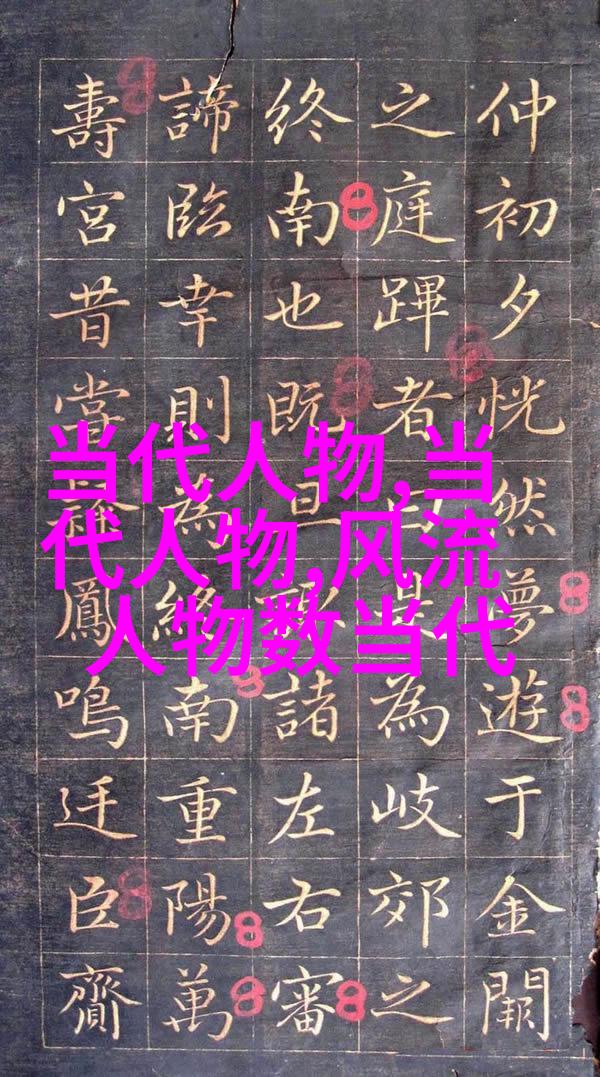 当代人物,当
代人物,风流
人物数当代
仲初夕恍然夢遊于金闕
之庭蹕者是為岐郊之
終南也既旦諸左右審
諦臨幸則為終南重陽萬
壽宮昔當鳳鳴廷臣齎